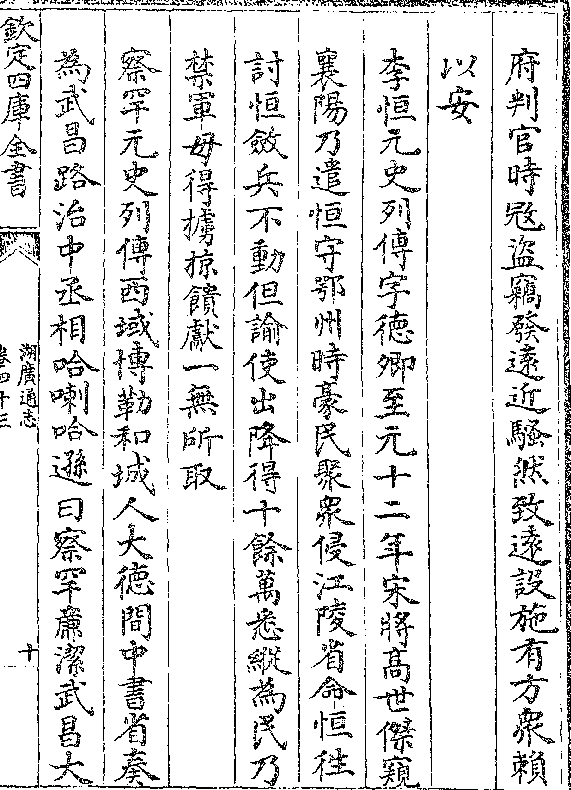 府判官時冦盗竊發遠近騷然致遠設施有方衆賴
以安
李恒元史列傳字德卿至元十二年宋將髙世傑窺
襄陽乃遣恒守鄂州時豪民聚衆侵江陵省命恒往
討恒斂兵不動但諭使出降得十餘萬悉縱為民乃
禁軍毋得擄掠饋獻一無所取
察罕元史列傳西域博勒和城人大徳間中書省奏
為武昌路治中丞相哈喇哈遜曰察罕廉潔武昌大
欽定四庫全書
湖廣通志
卷四十三
十